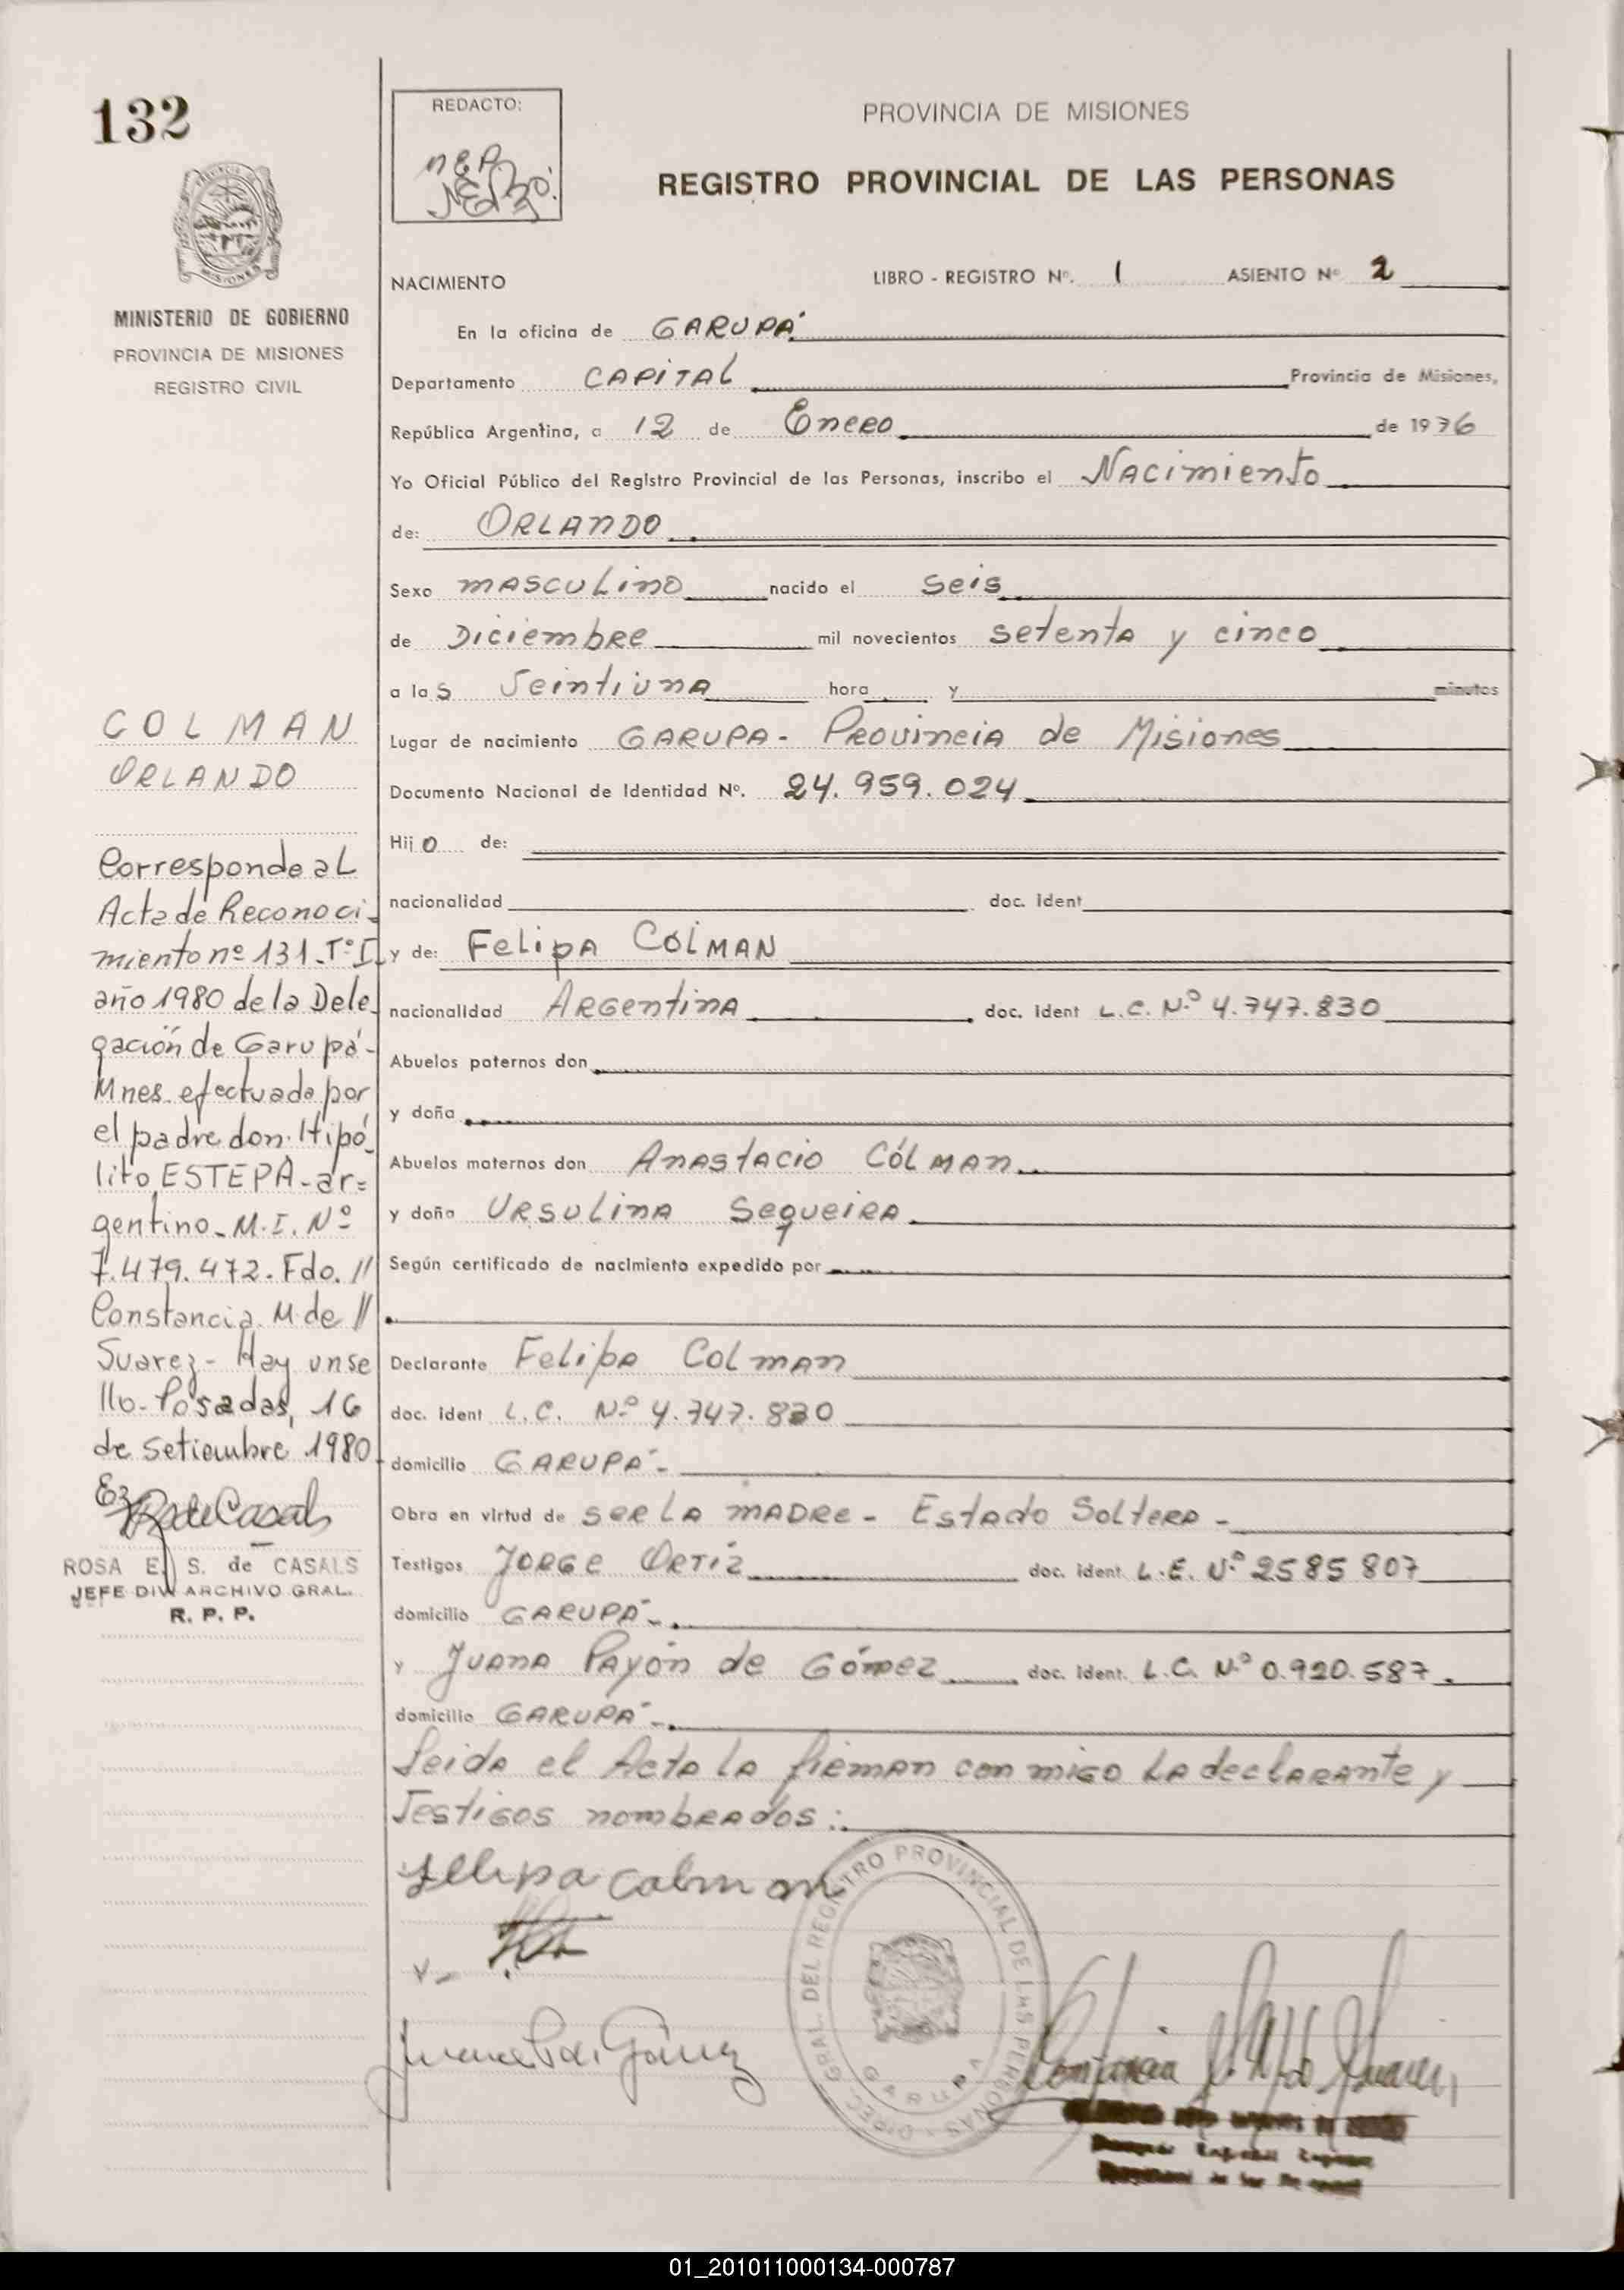 132
MINISTERIO DE GOBIERNO
PROVINCIA DE MISIONES
REGISTRO CIVIL
REDACTO:
PROVINCIA DE MISIONES
REGISTRO PROVINCIAL DE LAS PERSONAS
NACIMIENTO LIBRO - REGISTRO Nº. 1 ASIENTO Nº 2
En la oficina de GARUPÁ
Departamento CAPITAL Provincia de Misiones,
República Argentina, a 12 de Enero de 1976
Yo Oficial Público del Registro Provincial de las Personas, inscribo el Nacimiento
de: ORLANDO
Sexo masculino nacido el seis
de Diciembre mil novecientos setenta y cinco
a las veintiuna hora y minutos
Lugar de nacimiento GARUPA - Provincia de Misiones
Documento Nacional de Identidad Nº. 24.959.024
Hijo de:
nacionalidad doc. ident
y de: Felipa COLMAN
nacionalidad Argentina doc. ident L.C. N.º 4.747.830
Abuelos paternos don
y doña
Abuelos maternos don Anastacio CÓLMAN
y doña Ursulina Sequeira
Según certificado de nacimiento expedido por
Declarante Felipa Colman
doc. ident L.C. N.º 4.747.830
domicilio GARUPÁ -
Obra en virtud de ser la madre - Estado Soltera -
Testigos Jorge Ortiz doc. ident. L.E. N.º 2585807
domicilio GARUPÁ -
y Juana Payón de Gómez doc. ident. L.C. N.º 0.920.587
domicilio GARUPÁ -
Leida el Acta la firman con migo la declarante y
Testigos nombrados :
Felipa Colman
DIREC. GRAL. DEL REGISTRO PROVINCIAL DE LAS PERSONAS
GARUPA
COLMAN
ORLANDO
Corresponde al
Acta de Reconoci-
miento nº 131 Tº I
año 1980 de la Dele
gación de Garupá -
Mnes. efectuada por
el padre don Hipó-
lito ESTEPA - ar=
gentino - M.I. Nº
7.479.472. Fdo. //
Constancia M. de //
Suarez - Hay un se
llo. Posadas, 16
de setiembre 1980
ROSA E. S. de CASALS
JEFE DIV ARCHIVO GRAL.
R. P. P.
01_201011000134-000787